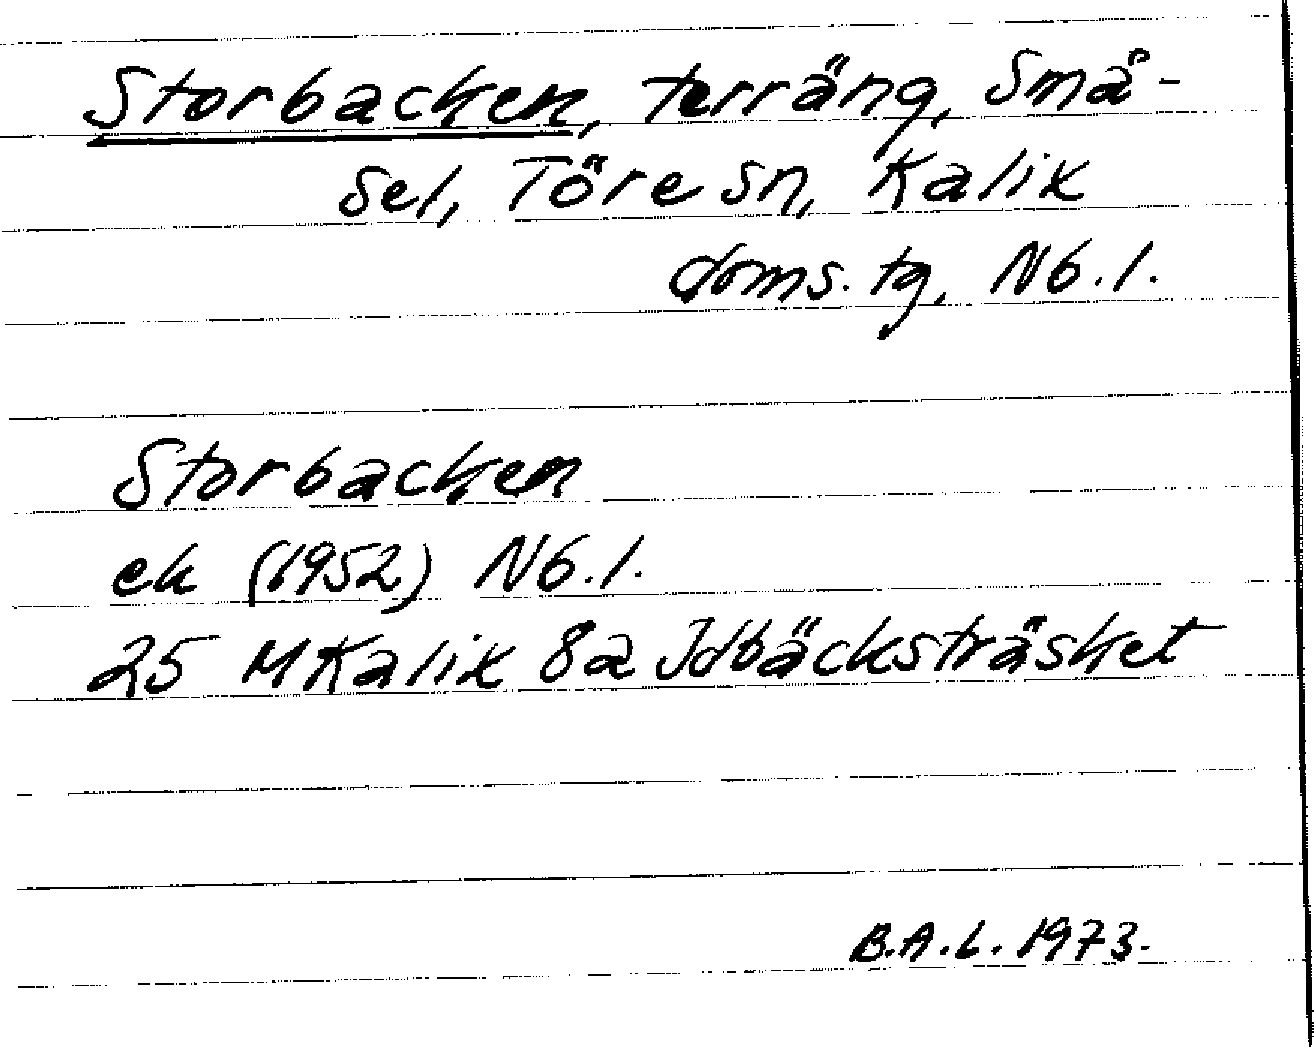 Storbacken, terräng, Små-
sel, Töre sn, Kalix
doms. tg, Nb. l.
Storbacken
ek (1952) Nb. l.
25 M Kalix 8a Idbäcksträsket
B.A.L. 1973.